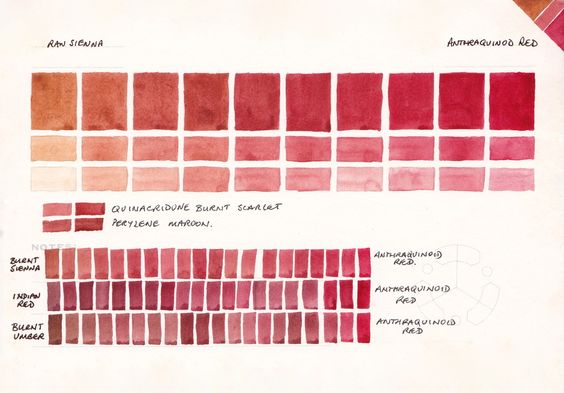 RAW SIENNA
ANTHRAQUINOD RED
QUINACRIDUNE BURNT SCARLET
PERYLENE MAROON.
NOTES
BURNT
SIENNA
ANTHRAQUINOID
RED.
INDIAN
RED
ANTHRAQUINOID
RED
BURNT
UMBER
ANTHRAQUINOID
RED